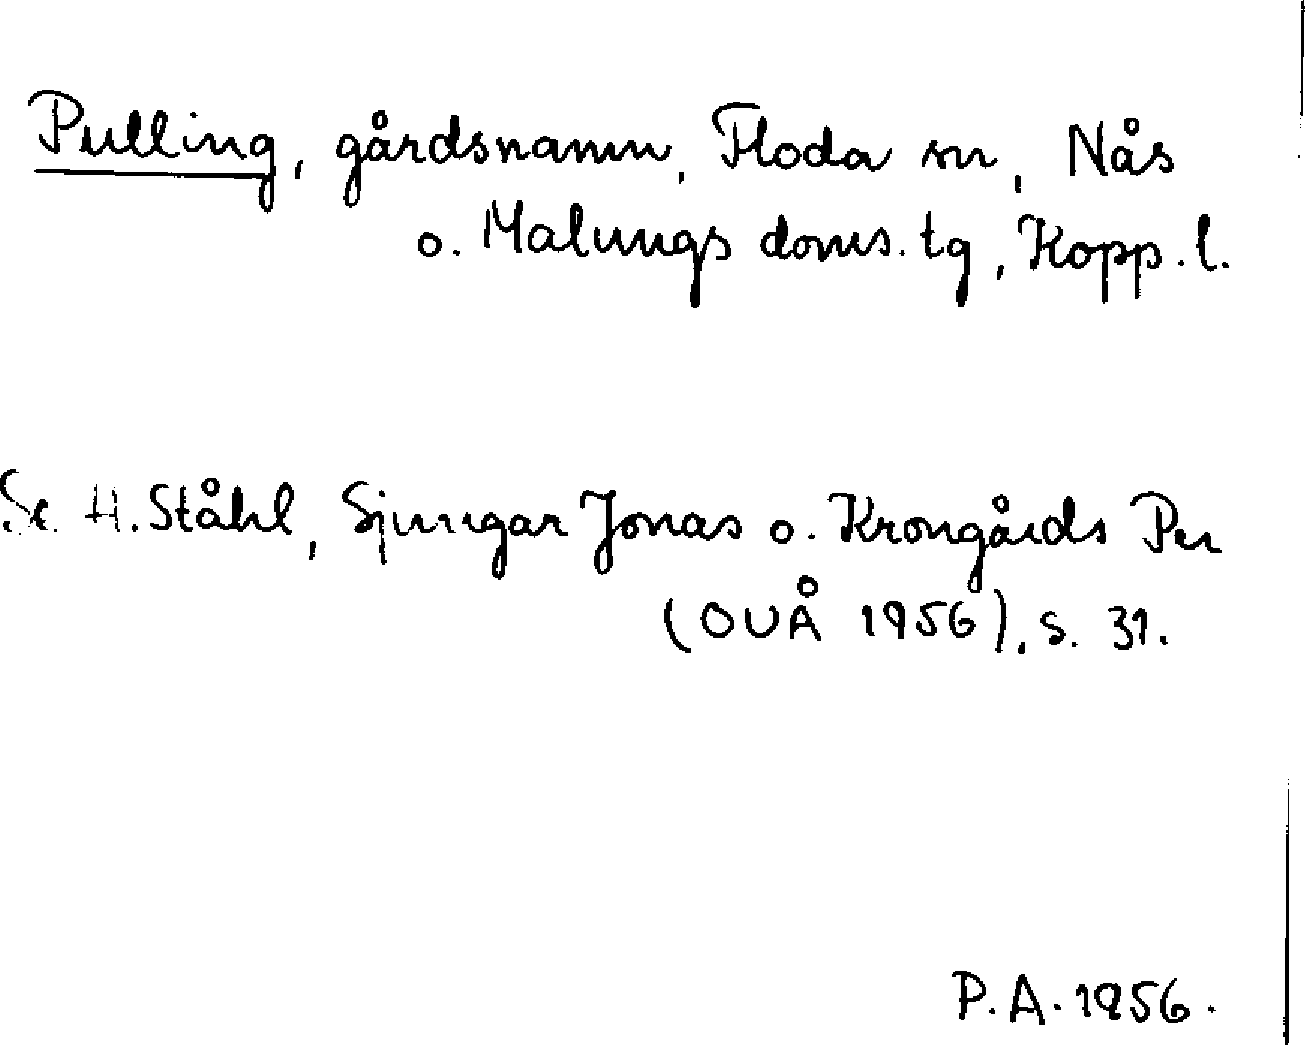 Pulling, gårdsnamn, Floda sn, Nås
o. Malungs doms. tg, Kopp. l.
Se H. Ståhl, Sjungar Jonas o. Krongårds Per
(OUÅ 1956), s. 31.
P. A. 1956.